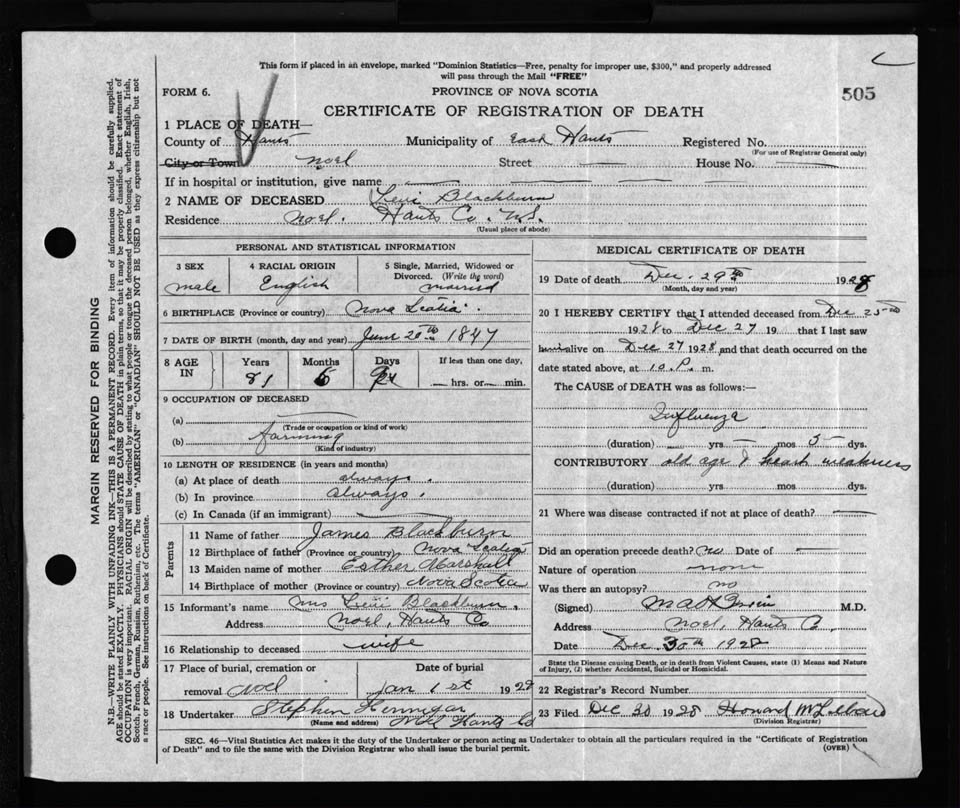 This form if placed in an envelope, marked "Dominion Statistics—Free, penalty for improper use, $300," and properly addressed
will pass through the Mail "FREE"
FORM 6.
PROVINCE OF NOVA SCOTIA
505
CERTIFICATE OF REGISTRATION OF DEATH
1 PLACE OF DEATH—
County of Hants Municipality of East Hants Registered No.
(For use of Registrar General only)
City or Town Noel Street House No.
If in hospital or institution, give name
2 NAME OF DECEASED Levi Blackburn
Residence Noel. Hants Co. N.S.
(Usual place of abode)
PERSONAL AND STATISTICAL INFORMATION
3 SEX 4 RACIAL ORIGIN 5 Single, Married, Widowed or
Divorced. (Write the word)
male English married
6 BIRTHPLACE (Province or country) Nova Scotia
7 DATE OF BIRTH (month, day and year) June 20th 1847
8 AGE IN Years Months Days If less than one day,
81 6 hrs. or min.
9 OCCUPATION OF DECEASED
(a)
(Trade or occupation or kind of work)
(b) farming
(Kind of industry)
10 LENGTH OF RESIDENCE (in years and months)
(a) At place of death always.
(b) In province always.
(c) In Canada (if an immigrant)
Parents
11 Name of father James Blackburn
12 Birthplace of father (Province or country) Nova Scotia
13 Maiden name of mother Esther Marshall
14 Birthplace of mother (Province or country) Nova Scotia
15 Informant's name Mrs Levi Blackburn,
Address Noel, Hants Co
16 Relationship to deceased wife
17 Place of burial, cremation or Date of burial
removal Noel Jan 1st 192
18 Undertaker Stephen Hennigar
(Name and address) Noel Hants Co
MEDICAL CERTIFICATE OF DEATH
19 Date of death Dec. 29th 1928
(Month, day and year)
20 I HEREBY CERTIFY that I attended deceased from Dec 25th
1928 to Dec 27 19 that I last saw
him alive on Dec 27 1928 and that death occurred on the
date stated above, at 10. P. m.
The CAUSE of DEATH was as follows:—
Influenza
(duration) yrs mos 5 dys.
CONTRIBUTORY old age & heart weakness
(duration) yrs. mos. dys.
21 Where was disease contracted if not at place of death?
Did an operation precede death? no Date of
Nature of operation none
Was there an autopsy? no
(Signed) M.D.
Address Noel, Hants Co.
Date Dec 30th 1928
State the Disease causing Death, or in death from Violent Causes, state (1) Means and Nature
of Injury, (2) whether Accidental, Suicidal or Homicidal.
22 Registrar's Record Number
23 Filed Dec 30 1928 Howard
(Division Registrar)
SEC. 46—Vital Statistics Act makes it the duty of the Undertaker or person acting as Undertaker to obtain all the particulars required in the "Certificate of Registration
of Death" and to file the same with the Division Registrar who shall issue the burial permit.
(OVER)
MARGIN RESERVED FOR BINDING
N.B.—WRITE PLAINLY WITH UNFADING INK—THIS IS A PERMANENT RECORD. Every item of information should be carefully supplied.
AGE should be stated EXACTLY. PHYSICIANS should STATE CAUSE OF DEATH in plain terms, so that it may be properly classified. Exact statement of
OCCUPATION is very important. RACIAL ORIGIN will be described by stating to what people or race the deceased person belonged, whether English, Irish,
Scotch, French, German, Russian, Ruthenian, etc. The terms "AMERICAN" or "CANADIAN" SHOULD NOT BE USED as they express citizenship but not
a race or people. See instructions on back of Certificate.